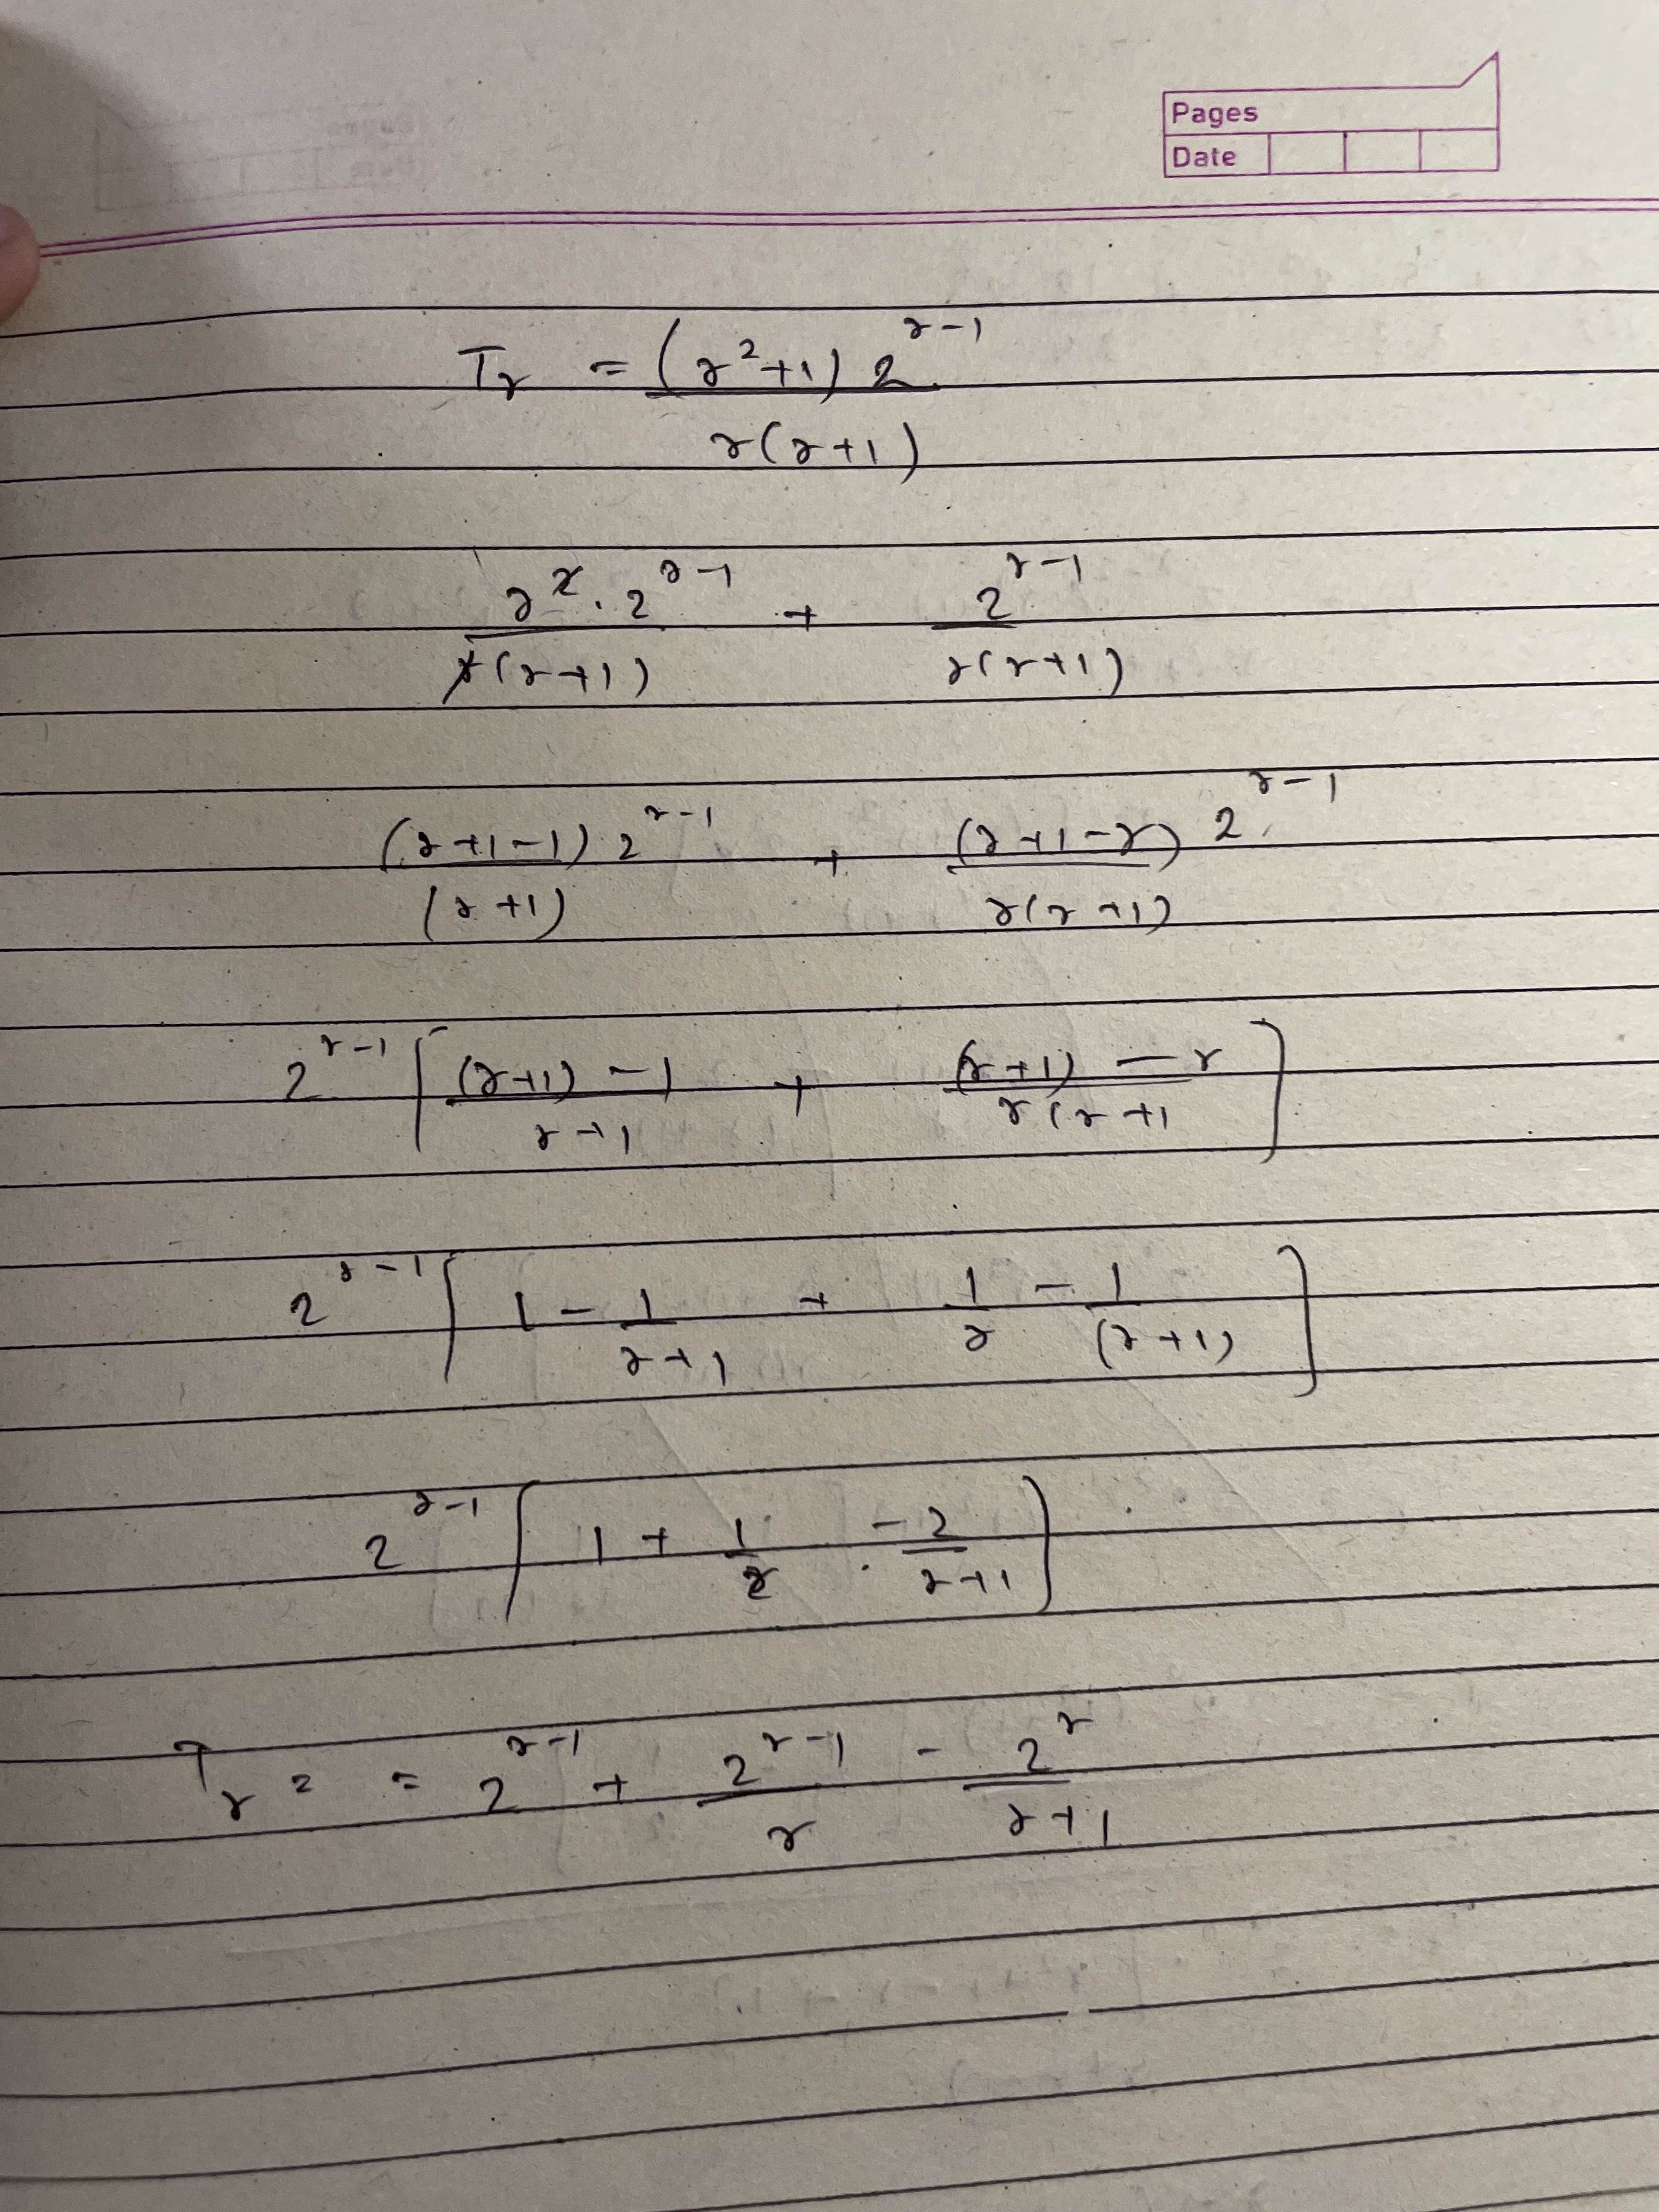 Pages
Date
T_r = (r²+1) 2^(r-1) / r(r+1)
r². 2^(r-1) / r(r+1) + 2^(r-1) / r(r+1)
(r+1-1) 2^(r-1) / (r+1) + (r+1-r) 2^(r-1) / r(r+1)
2^(r-1) [ (r+1) - 1 / r+1 + (r+1) - r / r(r+1 ]
2^(r-1) [ 1 - 1/r+1 + 1/r - 1/(r+1) ]
2^(r-1) [ 1 + 1/r - 2/r+1 ]
T_r = = 2^(r-1) + 2^(r-1)/r - 2^r/r+1